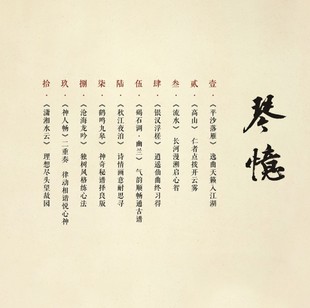 琴憶
壹 《平沙落雁》 逸曲天籁入江湖
贰 《高山》 仁者点拨开云雾
叁 《流水》 长河漫溯启心智
肆 《银汉浮槎》 逍遥仙曲终习得
伍 《碣石调·幽兰》 气韵顺畅通古谱
陆 《秋江夜泊》 诗情画意耐思寻
柒 《鹤鸣九皋》 神奇秘谱择良版
捌 《沧海龙吟》 独树风格炼心法
玖 《神人畅》二重奏 律动相谐悦心神
拾 《潇湘水云》 理想尽头望故园